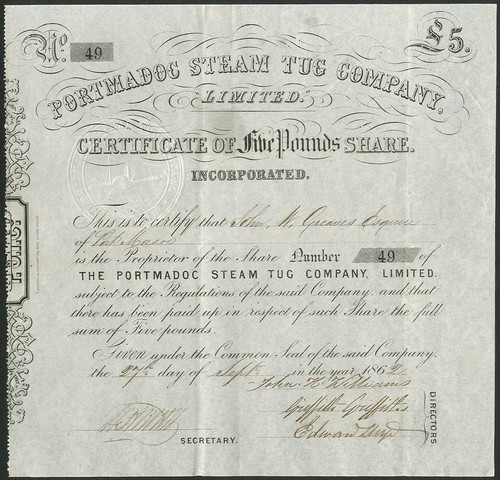 No. 49
£5.
PORTMADOC STEAM TUG COMPANY,
LIMITED.
CERTIFICATE OF Five Pounds SHARE.
INCORPORATED.
This is to certify that John W. Greaves Esquire
of Port Madoc
is the Proprietor of the Share Number 49 of
THE PORTMADOC STEAM TUG COMPANY, LIMITED.
subject to the Regulations of the said Company, and that
there has been paid up in respect of such Share the full
sum of Five pounds.
Given under the Common Seal of the said Company.
the 27th day of Sept in the year 1862
John H. Williams
Griffith Griffiths
Edward
SECRETARY.
DIRECTORS